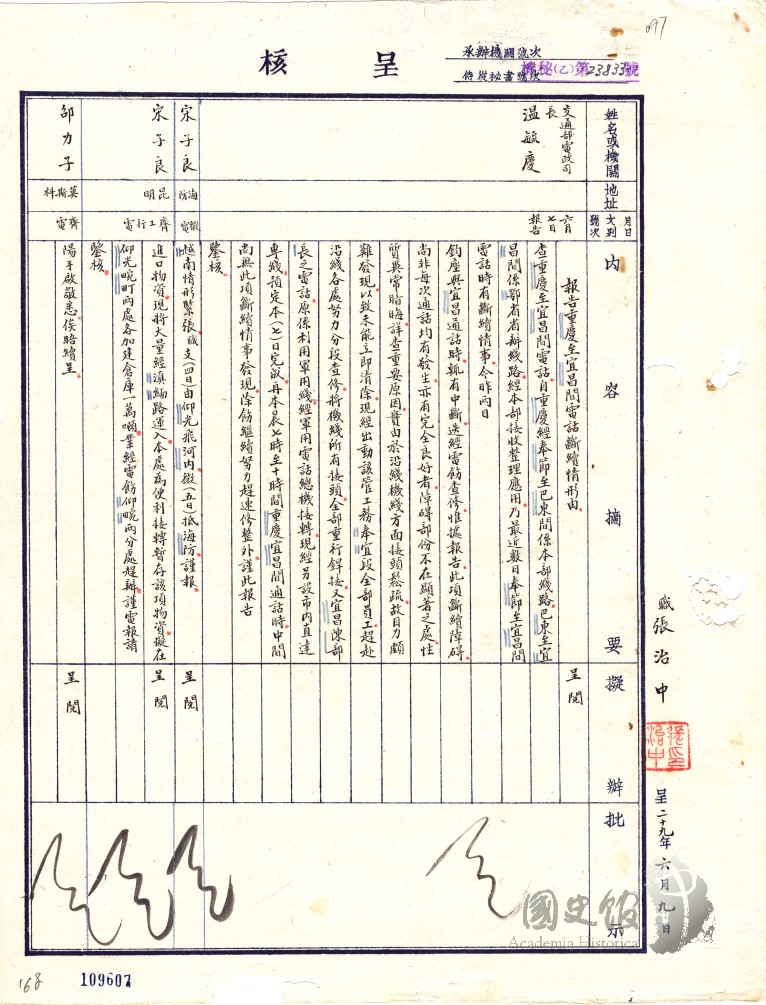 097
承辦機關號次
侍從秘書號次
機秘(乙)第23833號
呈核
姓名或機關
地址
月日
文別
號次
內容摘要
擬辦
批示
交通部電政司長
溫毓慶
六月七日
報告
報告重慶至宜昌間電話斷續情形由
查重慶至宜昌間電話自重慶經奉節至巴東間係本部綫路巴東至宜
昌間係鄂省省辦綫路經本部接收整理應用乃最近數日奉節至宜昌間
電話時有斷續情事今昨兩日
鈞座與宜昌通話時輒有中斷迭經電飭查修惟據報告此項斷續障碍
尚非每次通話均有發生亦有完全良好者障碍部份不在顯著之處性
質異常暗晦詳查重要原因實由於沿綫機綫方面接頭鬆疏故目力頗
難發現以致未能立即清除現經出動該管工務奉宜段全部員工趕赴
沿綫各處努力分段查修將機綫所有接頭全部重行銲接又宜昌陳部
長之電話原係利用軍用綫經軍用電話總機接轉現經另設市內直達
專綫預定本(七)日完竣再本晨七時至十時間重慶宜昌間通話時中間
尚無此項斷續情事發現除飭繼續努力趕速修整外謹此報告
鑒核
呈閱
宋子良
海防
微電
越南情形緊張職支(四日)由仰光飛河內微(五日)抵海防謹報
呈閱
宋子良
昆明
齊工行電
進口物資現將大量經滇緬路運入本處為便利接轉暫存該項物資擬在
仰光畹町兩處各加建倉庫一萬噸業經電飭仰畹兩分處趕辦謹電報請
鑒核
呈閱
邵力子
莫斯科
齊電
陽手啟敬悉俟晤續呈
呈閱
職張治中
呈二十九年六月九日
國史館
Academia Historica
168
109607